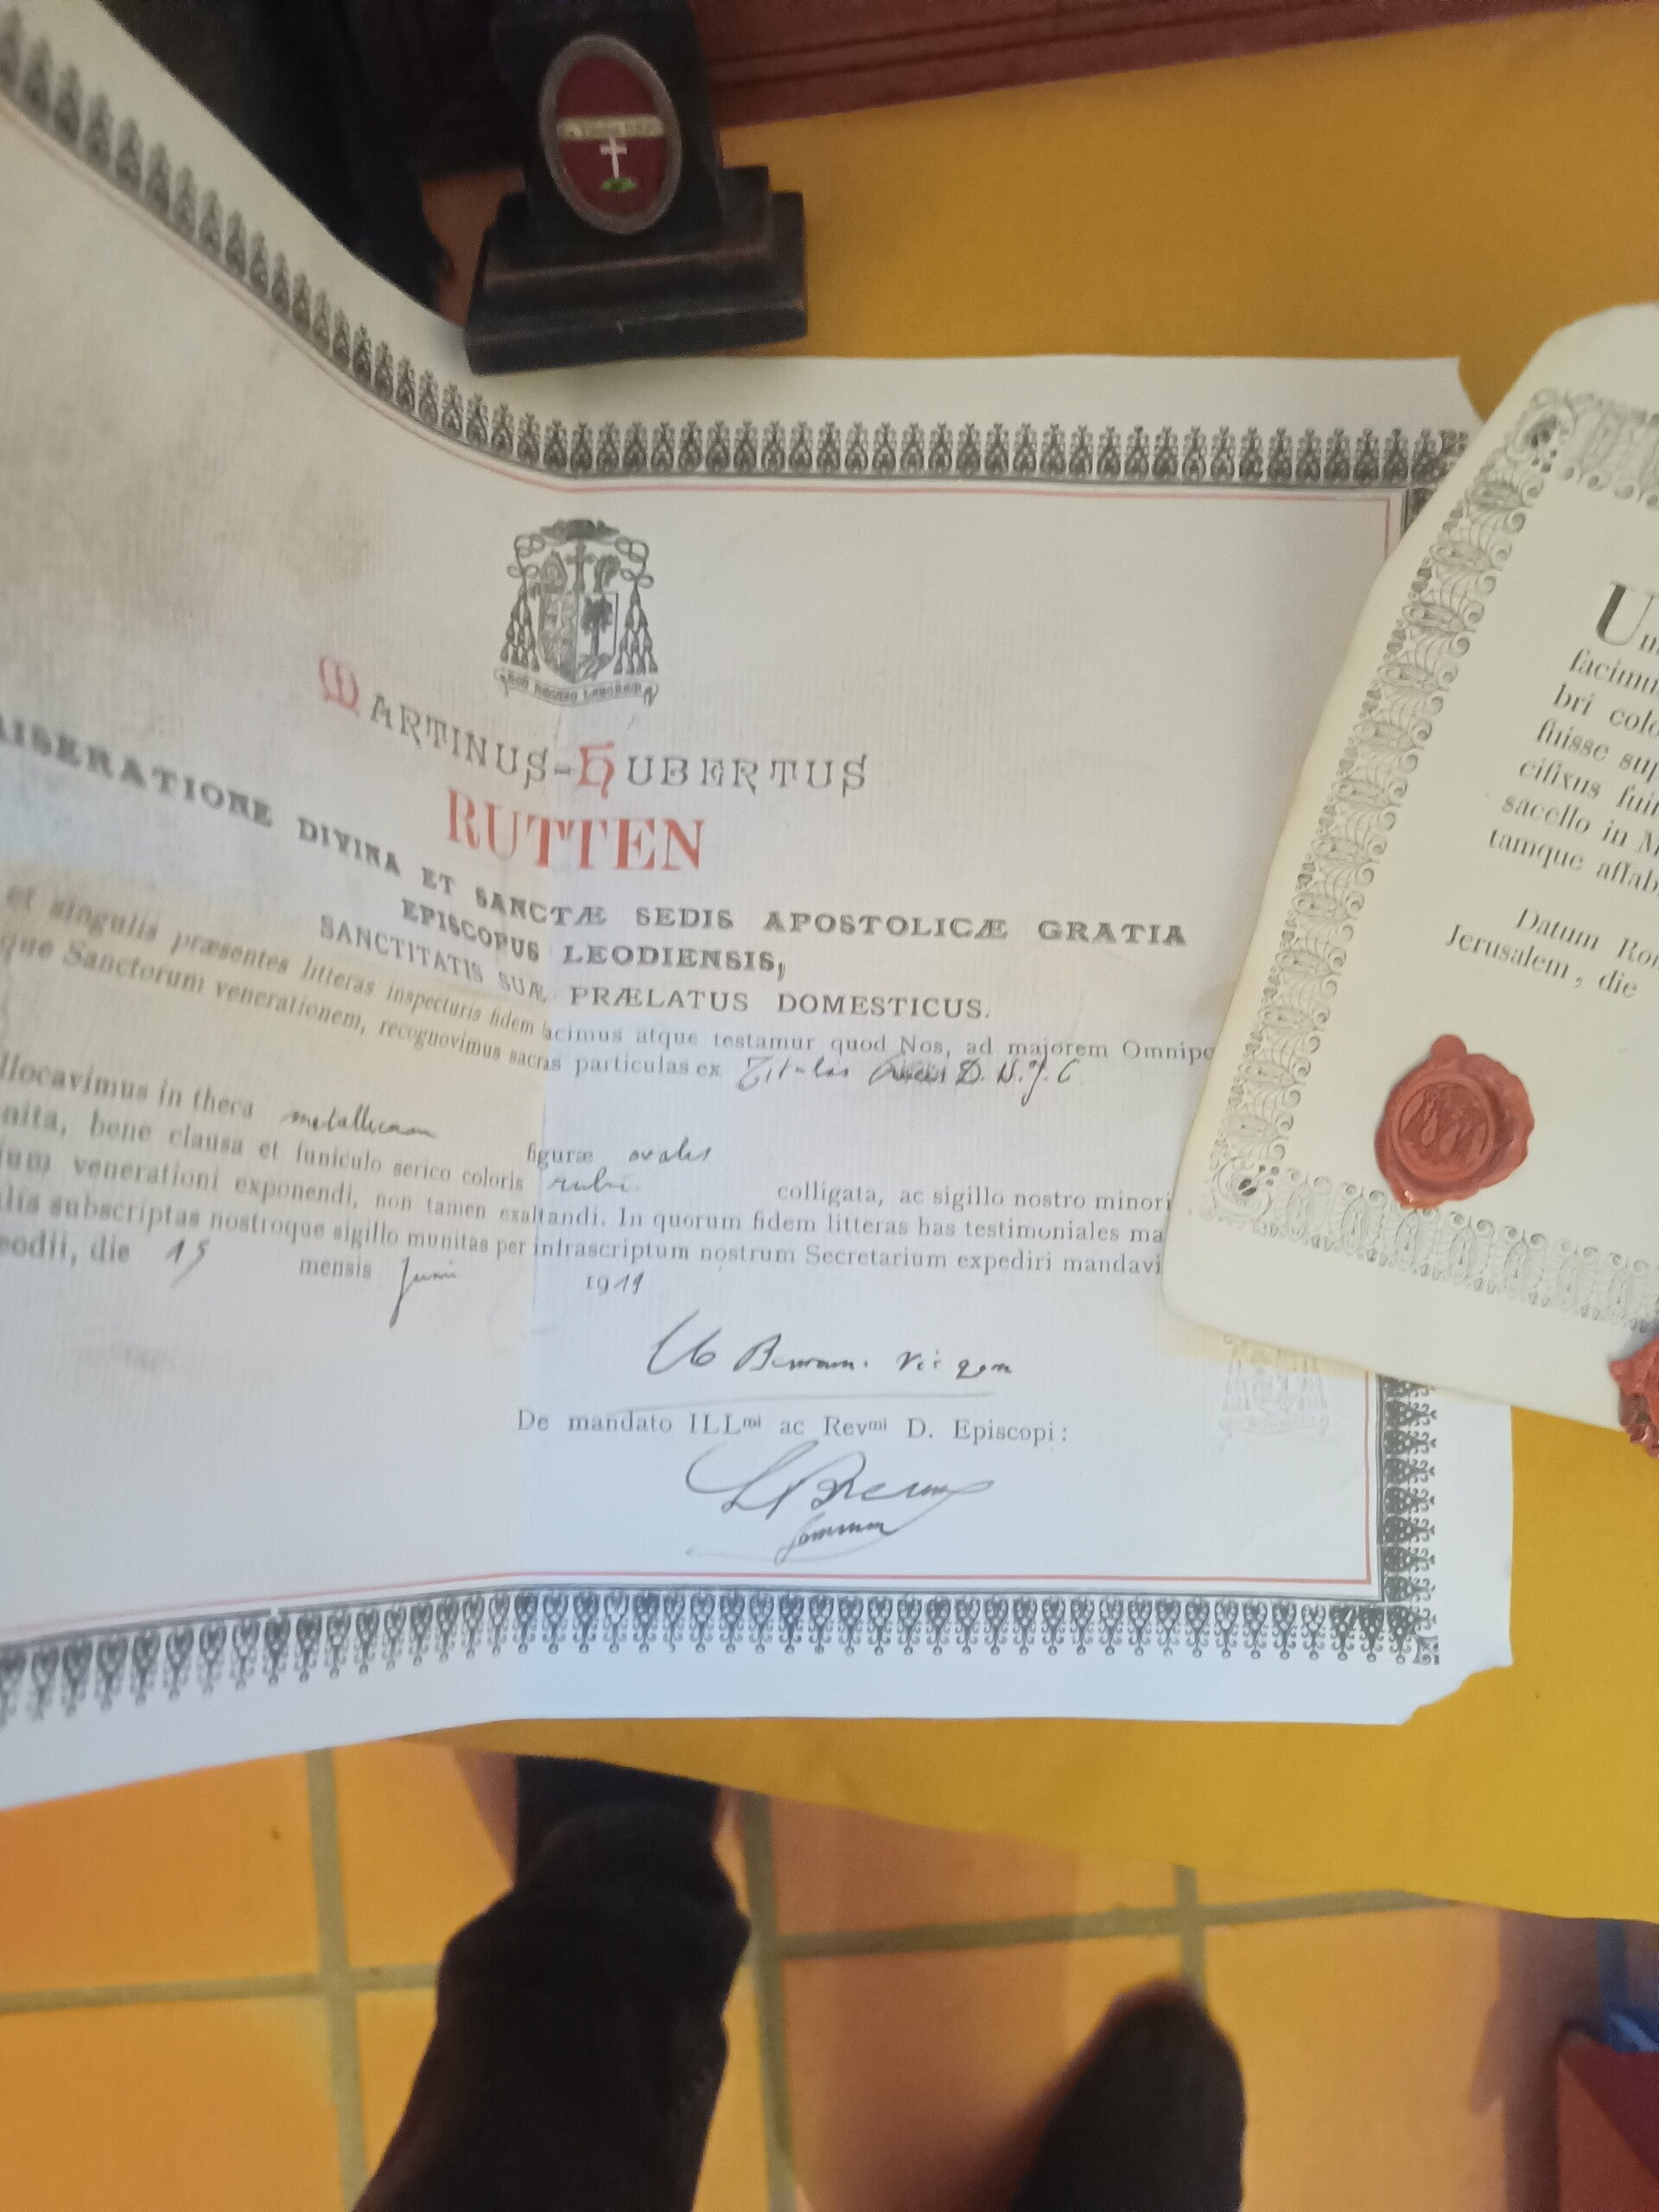 NON RECUSO LABOREM
MARTINUS-HUBERTUS
RUTTEN
MISERATIONE DIVINA ET SANCTÆ SEDIS APOSTOLICÆ GRATIA
EPISCOPUS LEODIENSIS,
SANCTITATIS SUÆ PRÆLATUS DOMESTICUS.
et singulis præsentes litteras inspecturis fidem facimus atque testamur quod Nos, ad majorem Omnipo
que Sanctorum venerationem, recognovimus sacras particulas ex Titulus Crucis D. N. J. C
llocavimus in theca metallicam figuræ ovalis
nita, bene clausa et funiculo serico coloris rubri colligata, ac sigillo nostro minori
ium venerationi exponendi, non tamen exaltandi. In quorum fidem litteras has testimoniales ma
lis subscriptas nostroque sigillo munitas per infrascriptum nostrum Secretarium expediri mandavi
eodii, die 15 mensis Junii 1911
Vic gen
De mandato ILLmi ac Revmi D. Episcopi:
Un
facimu
bri colo
fuisse sup
cifixus fuit
sacello in M
tamque affab
Datum Rom
Jerusalem, die